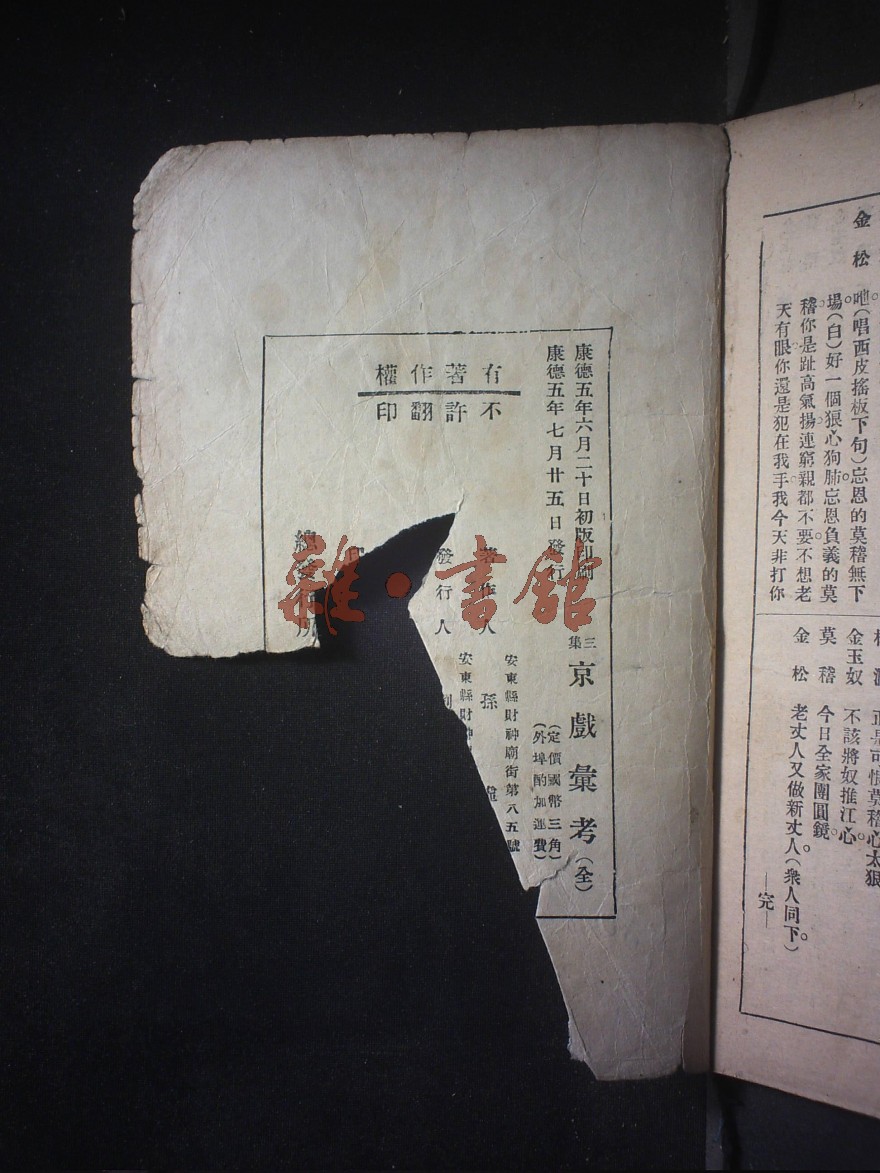 金松
吔。(唱西皮搖板下句)忘恩的莫稽無下
場。(白)好一個狠心狗肺忘恩負義的莫
稽你是趾高氣揚連窮親都不要不想老
天有眼你還是犯在我手我今天非打你
金玉奴 不該將奴推江心。
莫稽 今日全家團圓鏡。
金松 老丈人又做新丈人。(衆人同下)
—完—
康德五年六月二十日初版印刷
康德五年七月廿五日發行
三集 京戲彙考(全)
(定價國幣三角)
(外埠酌加運費)
有著作權
不許翻印
著作人 孫
安東縣財神廟街第八五號
發行人
安東縣財神
印
總發行所
雜·書館